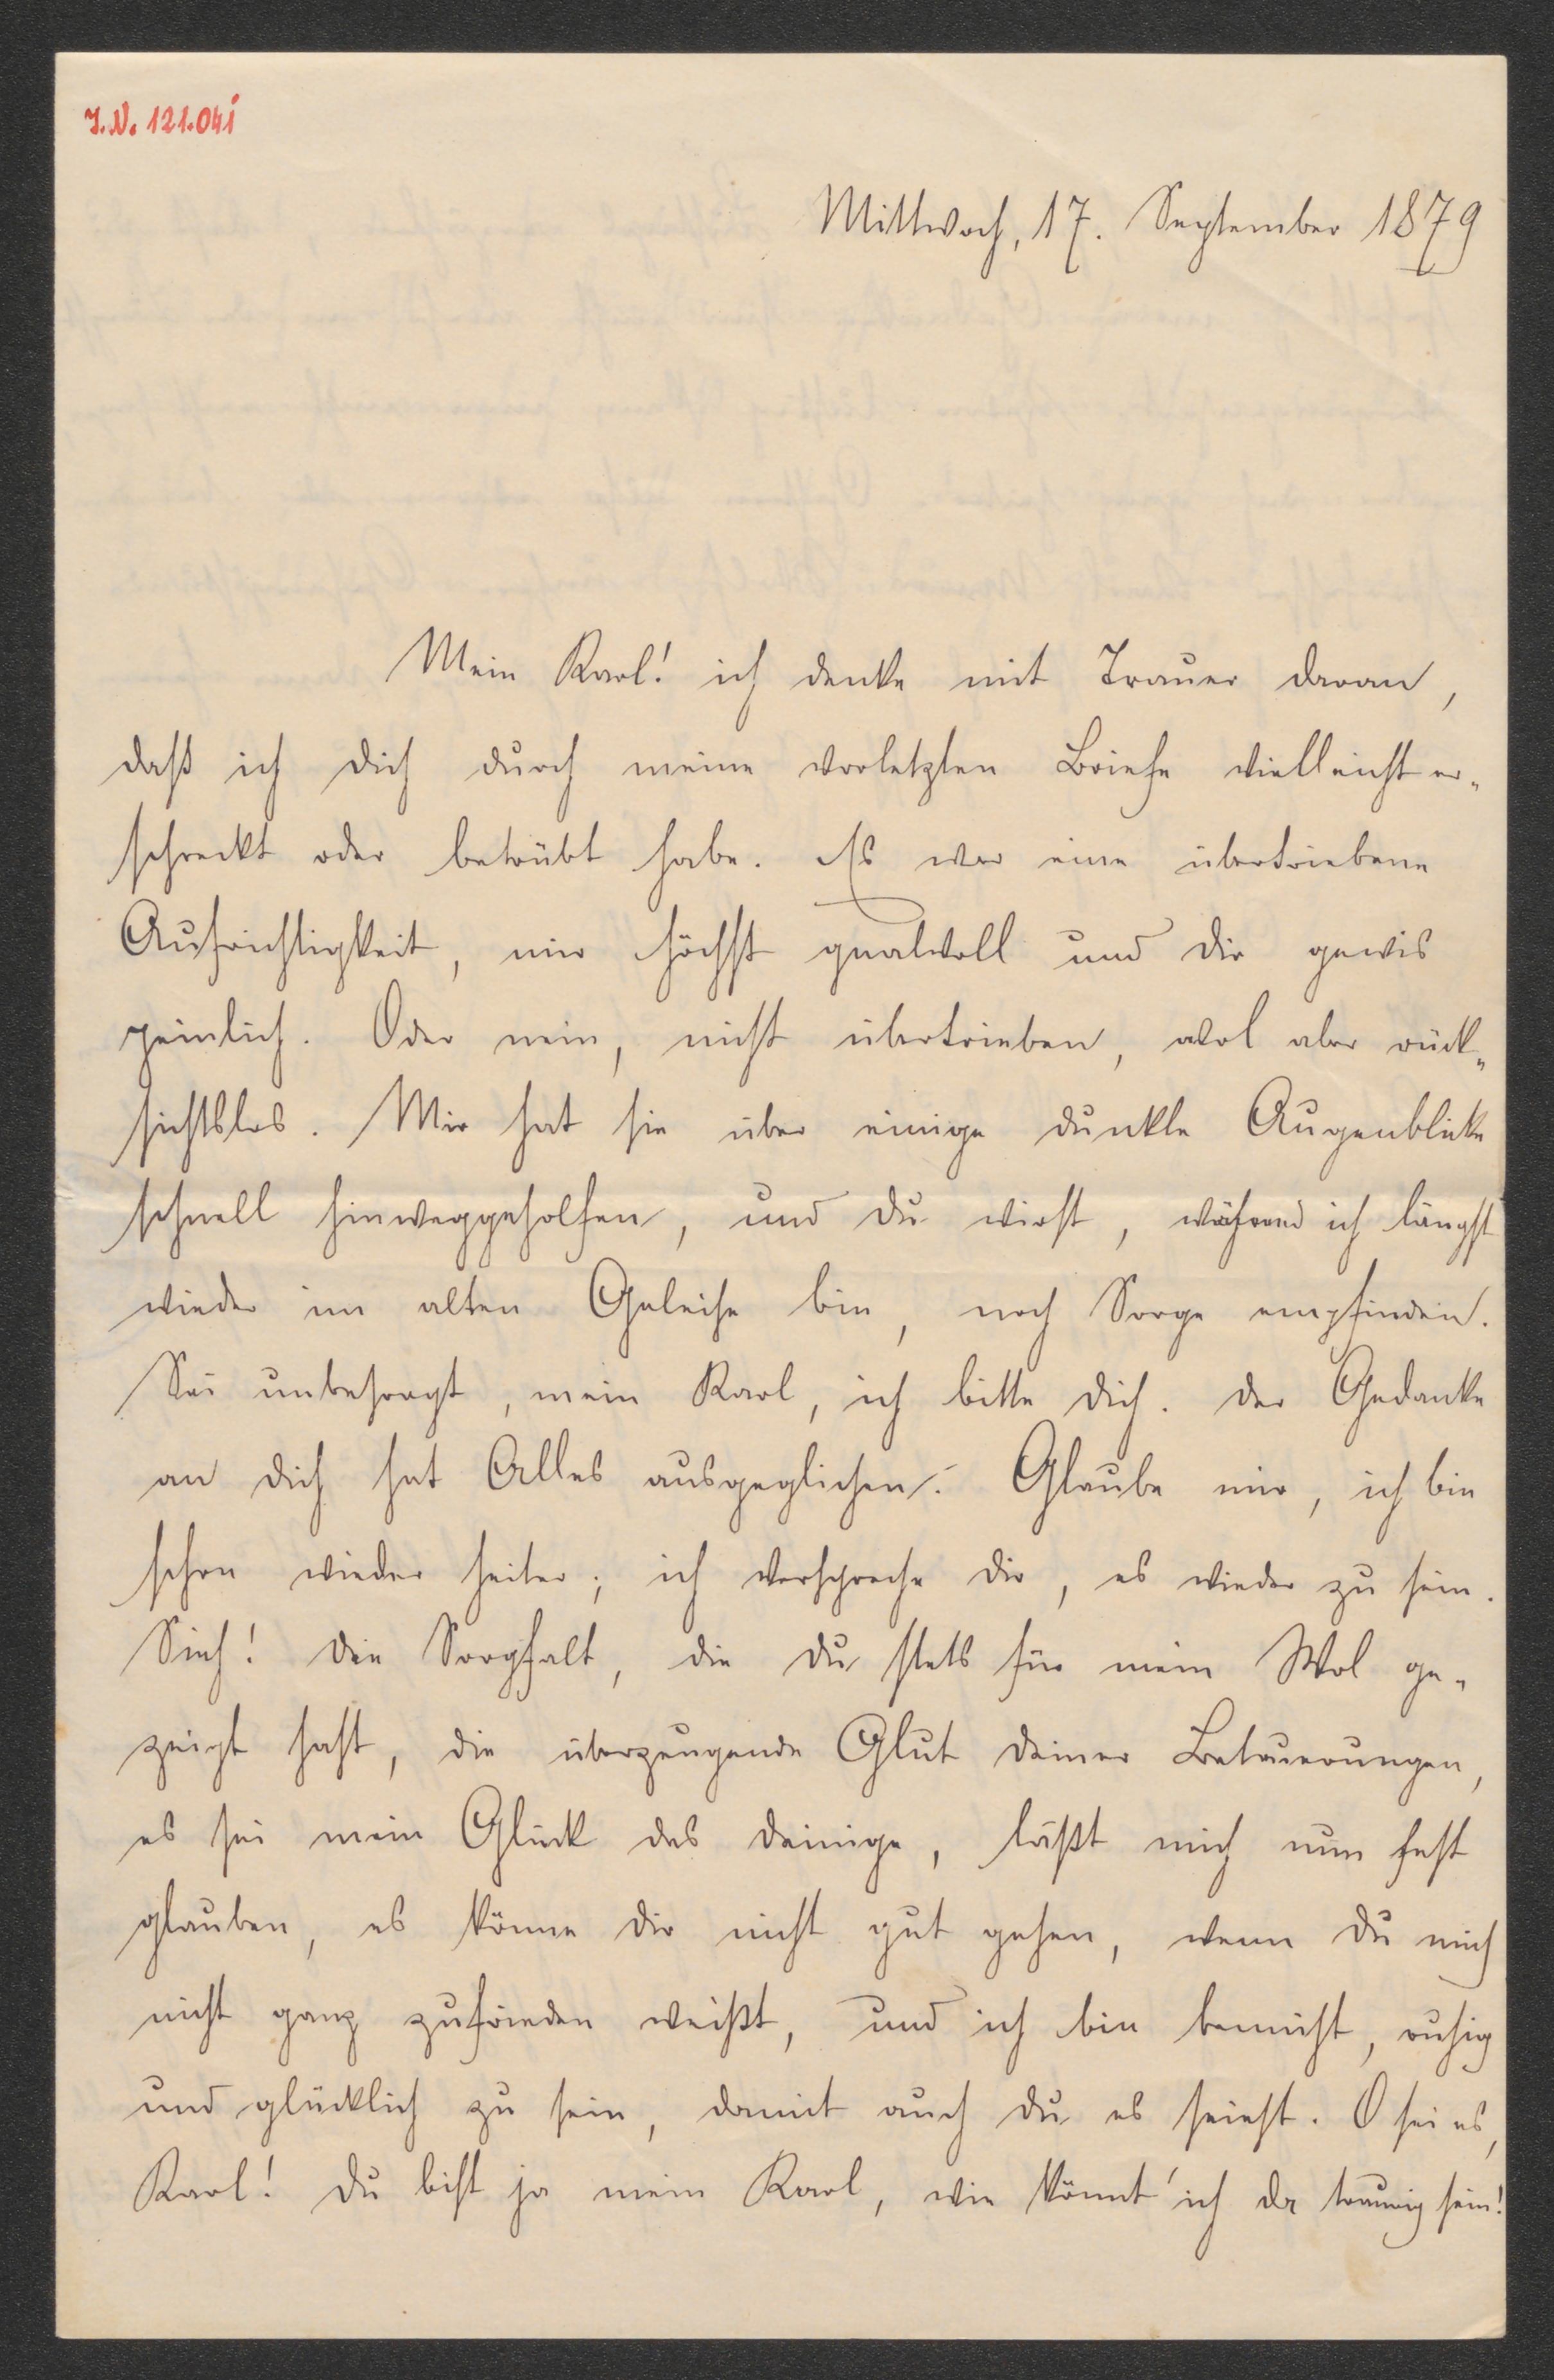 J.N. 121.041
Mittwoch, 17. September 1879
Mein Karl! ich denke mit Trauer daran,
daß ich dich durch meine vorletzten Briefe vielleicht er-
schreckt oder betrübt habe. Es war eine übertriebene
Aufrichtigkeit, mir höchst qualvoll und dir gewis
peinlich. Oder nein, nicht übertrieben, wol aber rück-
sichtslos. Mir hat sie über einige dunkle Augenblicke
schnell hinweggeholfen, und du wirst, während ich längst
wieder im alten Geleise bin, noch Sorge empfinden.
Sei unbesorgt, mein Karl, ich bitte dich. Der Gedanke
an dich hat Alles ausgeglichen. Glaube mir, ich bin
schon wieder heiter; ich verspreche dir, es wieder zu sein.
Sieh! Die Sorgfalt, die du stets für mein Wol ge-
zeigt hast, die überzeugende Glut deiner Beteuerungen,
es sei mein Glück das deinige, läßt mich nun fest
glauben, es könne dir nicht gut gehen, wenn du mich
nicht ganz zufrieden weißt, und ich bin bemüht, ruhig
und glücklich zu sein, damit auch du es seiest. O sei es,
Karl! du bist ja mein Karl, wie könnt' ich da traurig sein!